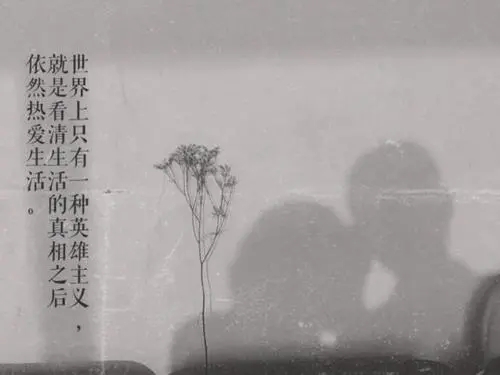 世界上只有一种英雄主义，
就是看清生活的真相之后
依然热爱生活。